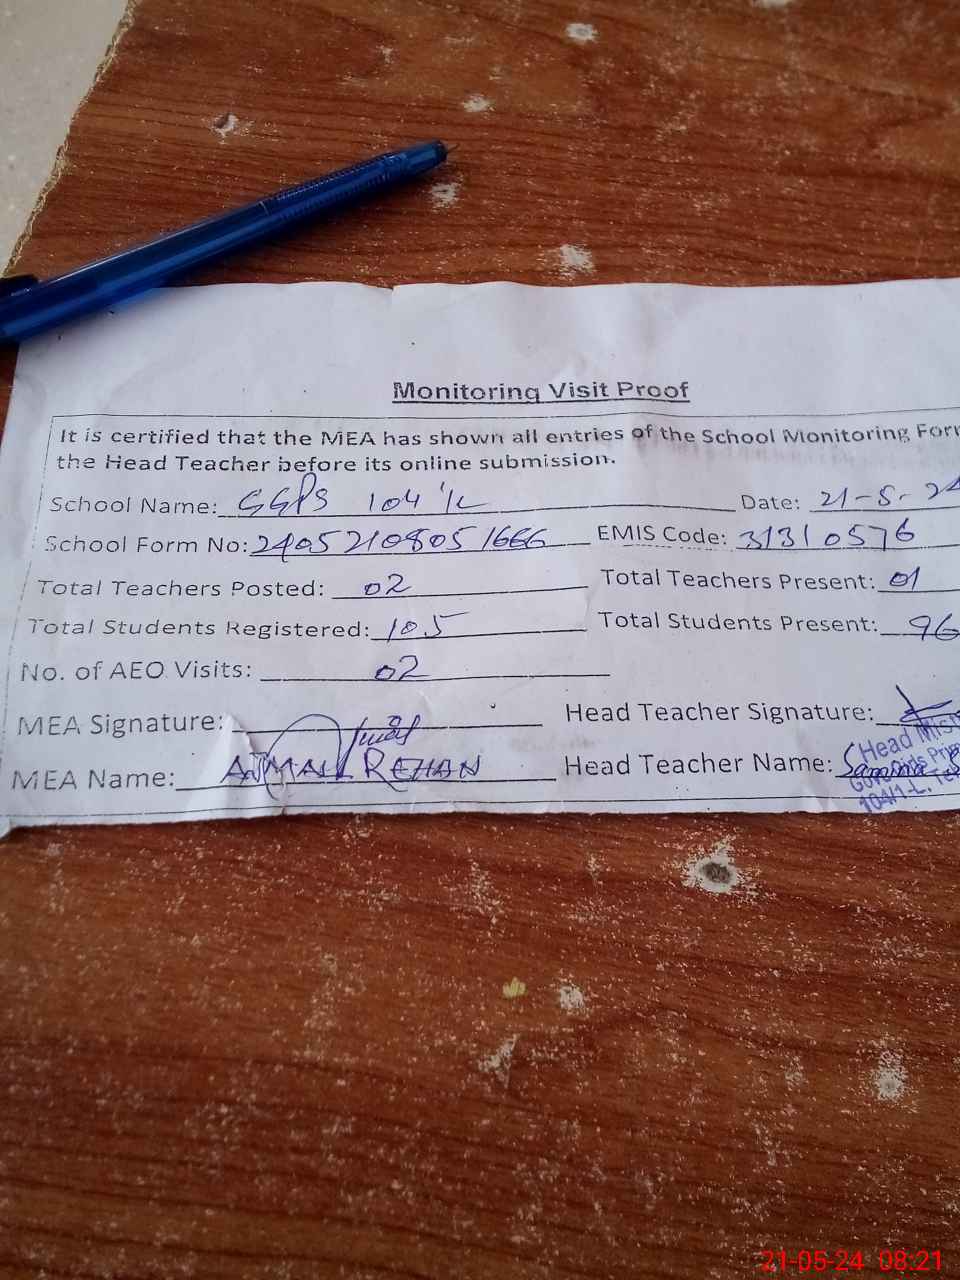 Monitoring Visit Proof
It is certified that the MEA has shown all entries of the School Monitoring Form
the Head Teacher before its online submission.
School Name: GGPS 104/1L Date: 21-5-24
School Form No: 24052108051666 EMIS Code: 31310576
Total Teachers Posted: 02 Total Teachers Present: 01
Total Students Registered: 105 Total Students Present: 96
No. of AEO Visits: 02
MEA Signature: Head Teacher Signature:
MEA Name: AJMALL REHAN Head Teacher Name:
Head Mist
104/1-L. Te
21-05-24 08:21